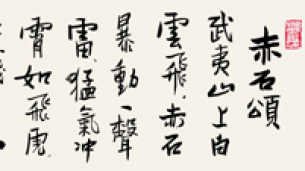 赤石頌
武夷山上白
雲飛赤石
暴動一聲
雷猛氣冲
霄如飛虎